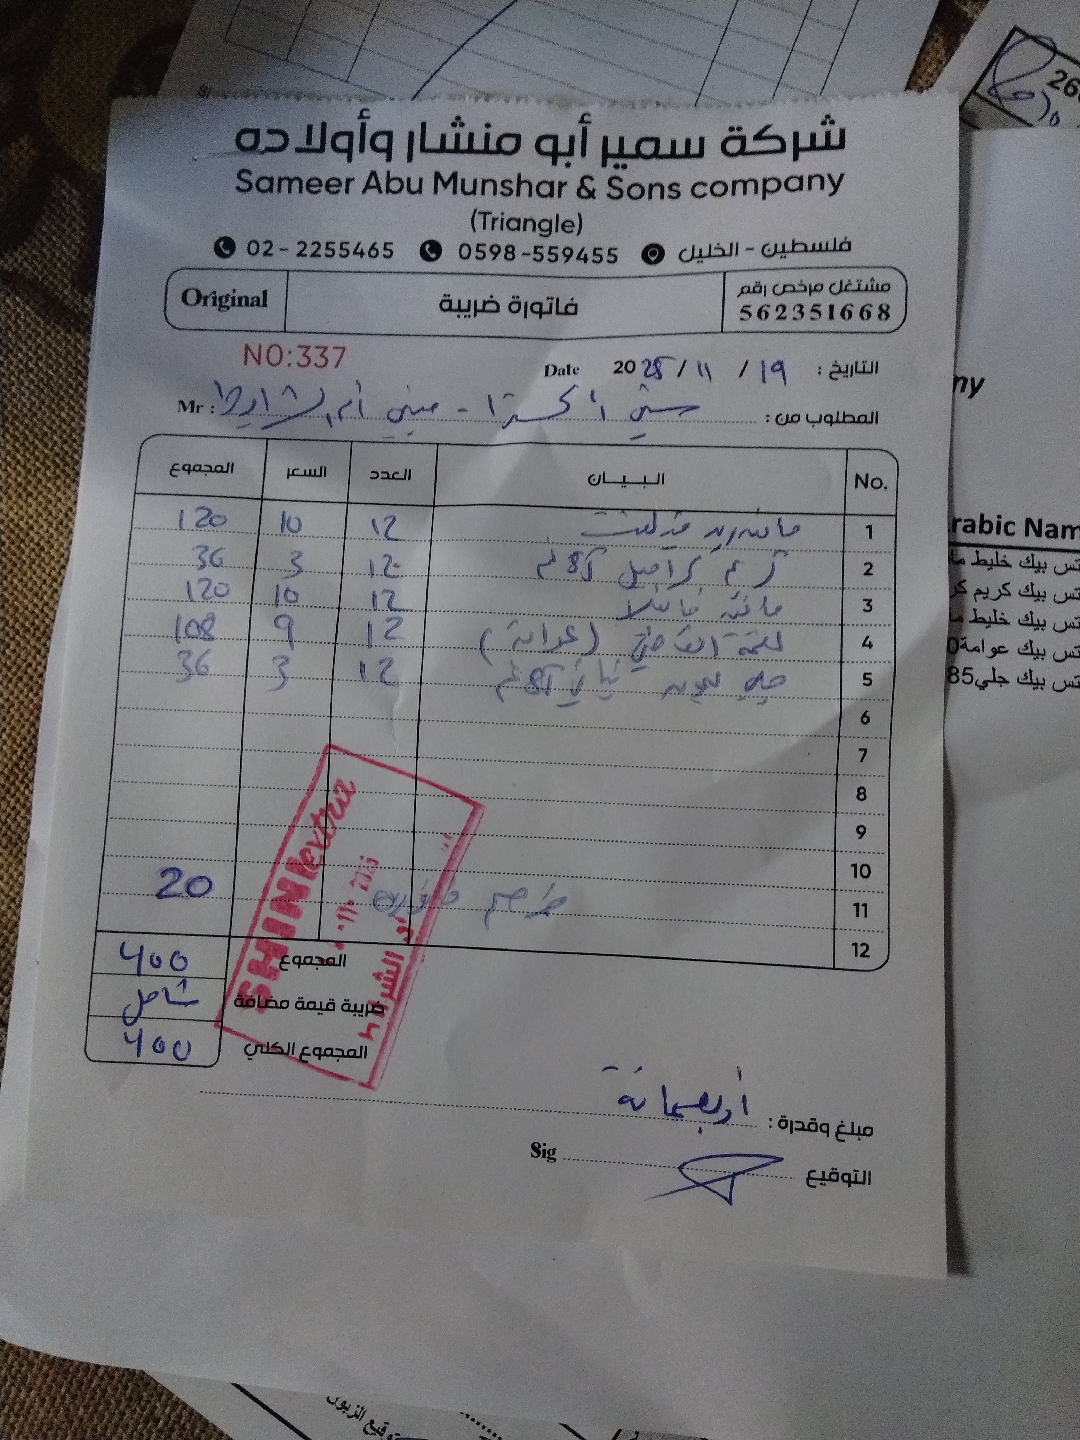 شركة سمير أبو منشار وأولاده
Sameer Abu Munshar & Sons company
(Triangle)
فلسطين - الخليل 0598-559455 02-2255465
مشتغل مرخص رقم
562351668
فاتورة ضريبة
Original
NO:337
التاريخ : 19 / 11 / 2025 Date
المطلوب من : Mr :
No. البيان العدد السعر المجموع
1 12 10 120
2 كريم كراميل 85غم 12 3 36
3 فانيلا 12 10 120
4 لقمة القاضي (عوامة) 12 9 108
5 85غم 12 3 36
6
7
8
9
10
11 خصم فاتورة 20
12
المجموع 400
ضريبة قيمة مضافة شامل
المجموع الكلي 400
SHINI extra
مبلغ وقدرة : أربعمائة
التوقيع Sig
ny
rabic Nam
تس بيك خليط ما
تس بيك كريم كر
تس بيك خليط ما
تس بيك عوامة0
تس بيك جلي85
توقيع الزبون